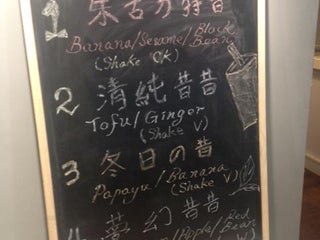 1 朱古力特昔
Banana/Sesame/Black Bean
(Shake CK)
2 清純昔昔
Tofu/Ginger
(Shake V)
3 冬日の昔
Papaya/Banana
(Shake V)
4 夢幻昔昔
/Apple/Red Bean